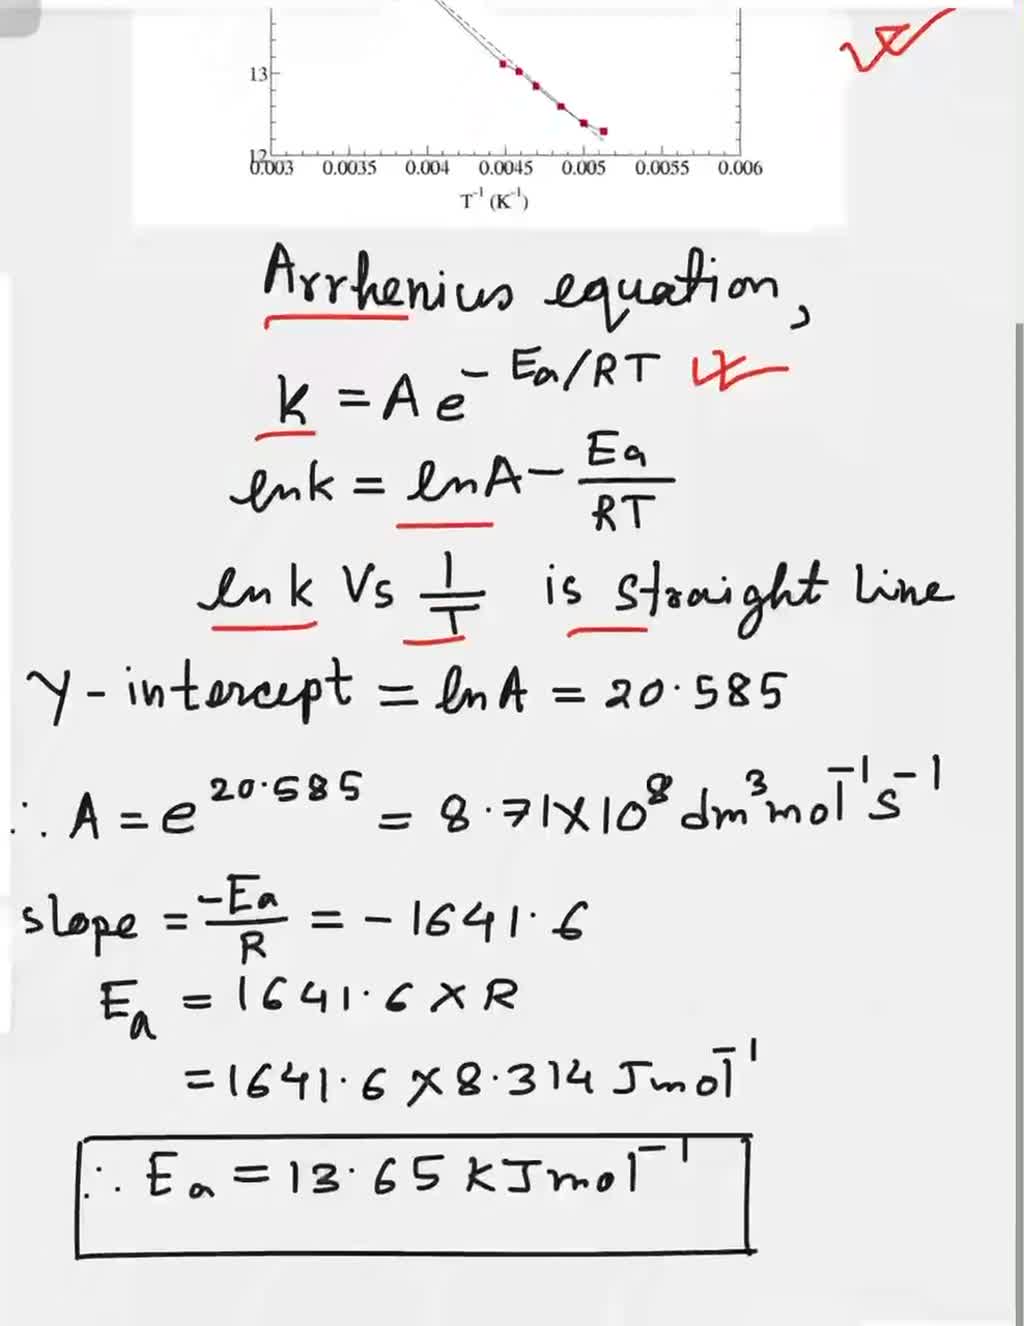 13
12
0.003 0.0035 0.004 0.0045 0.005 0.0055 0.006
T⁻¹ (K⁻¹)
Arrhenius equation,
k = A e^(- Ea/RT)
ln k = ln A - Ea/RT
ln k Vs 1/T is straight line
Y-intercept = ln A = 20.585
∴ A = e^20.585 = 8.71 × 10⁸ dm³ mol⁻¹ s⁻¹
slope = -Ea/R = -1641.6
Ea = 1641.6 × R
= 1641.6 × 8.314 J mol⁻¹
∴ Ea = 13.65 kJ mol⁻¹